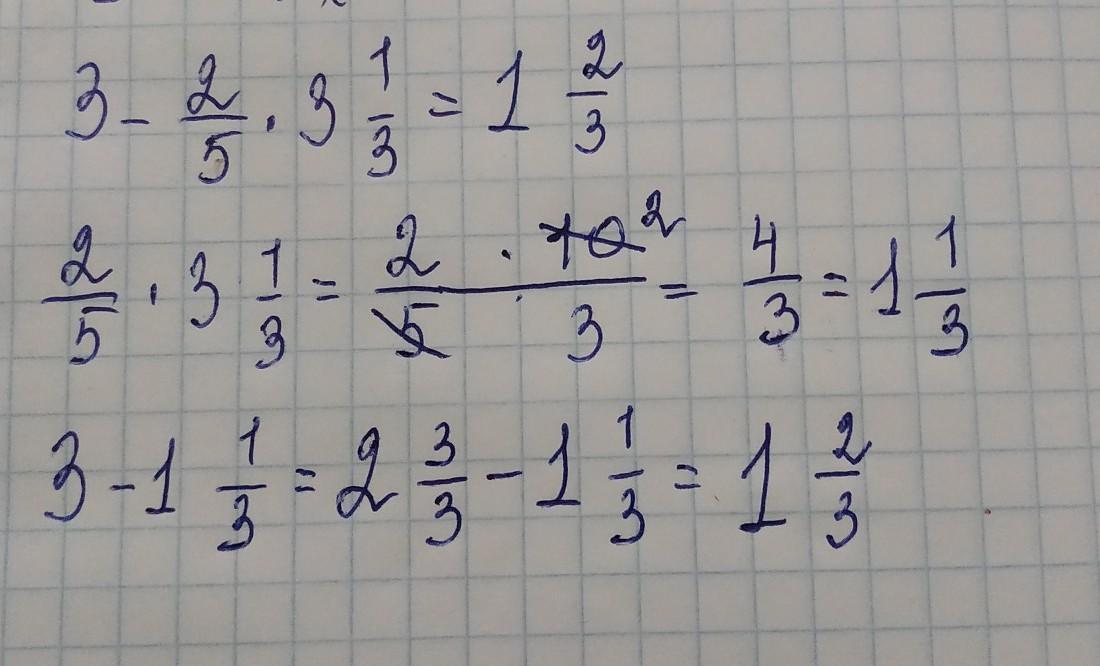 3 - 2/5 · 3 1/3 = 1 2/3
2/5 · 3 1/3 = 2 · 10 2 / 5 3 = 4/3 = 1 1/3
3 - 1 1/3 = 2 3/3 - 1 1/3 = 1 2/3